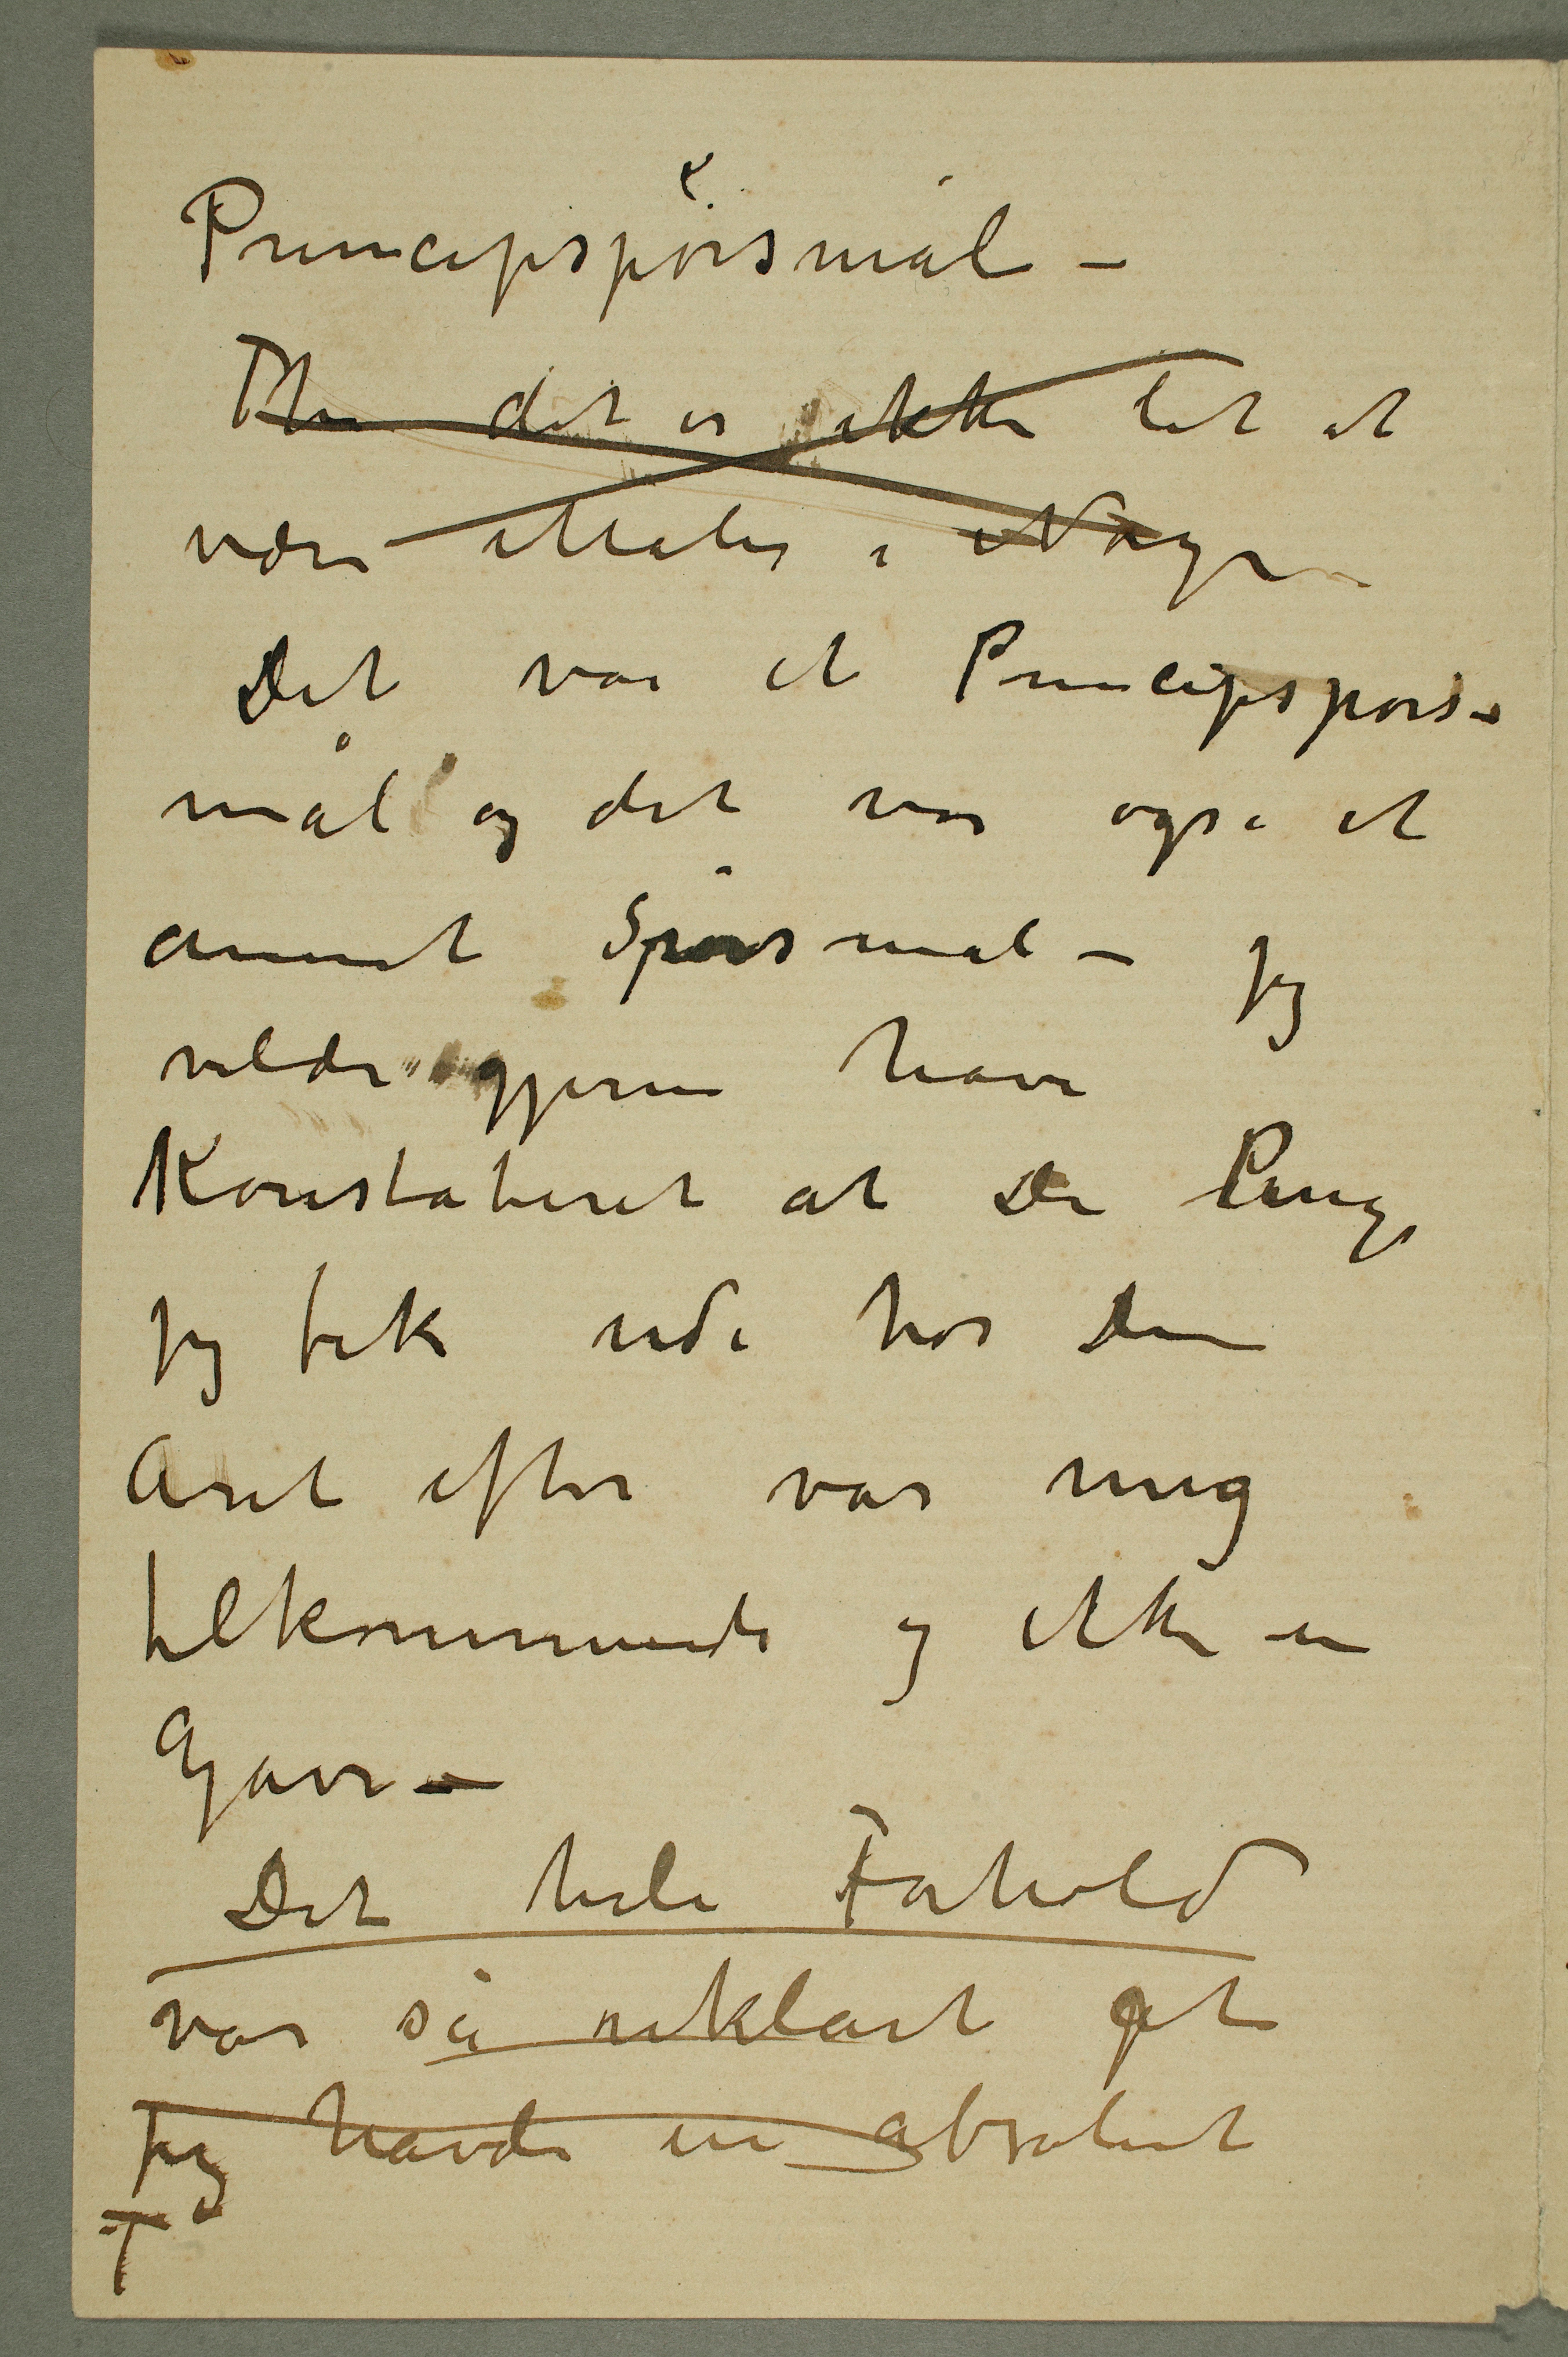 Principspörsmål –
Thi det er ikke let at
være Maler i Norge
Det var et Principspörs-
mål og det var også et
annet Spörsmål – jeg
vilde gjerne have
Konstateret at de Penge
jeg fik ude hos Dem
Aret efter var mig
tilkommende og ikke en
Gave –
Det hele Forhold
var så uklart at
jeg havde en absolut